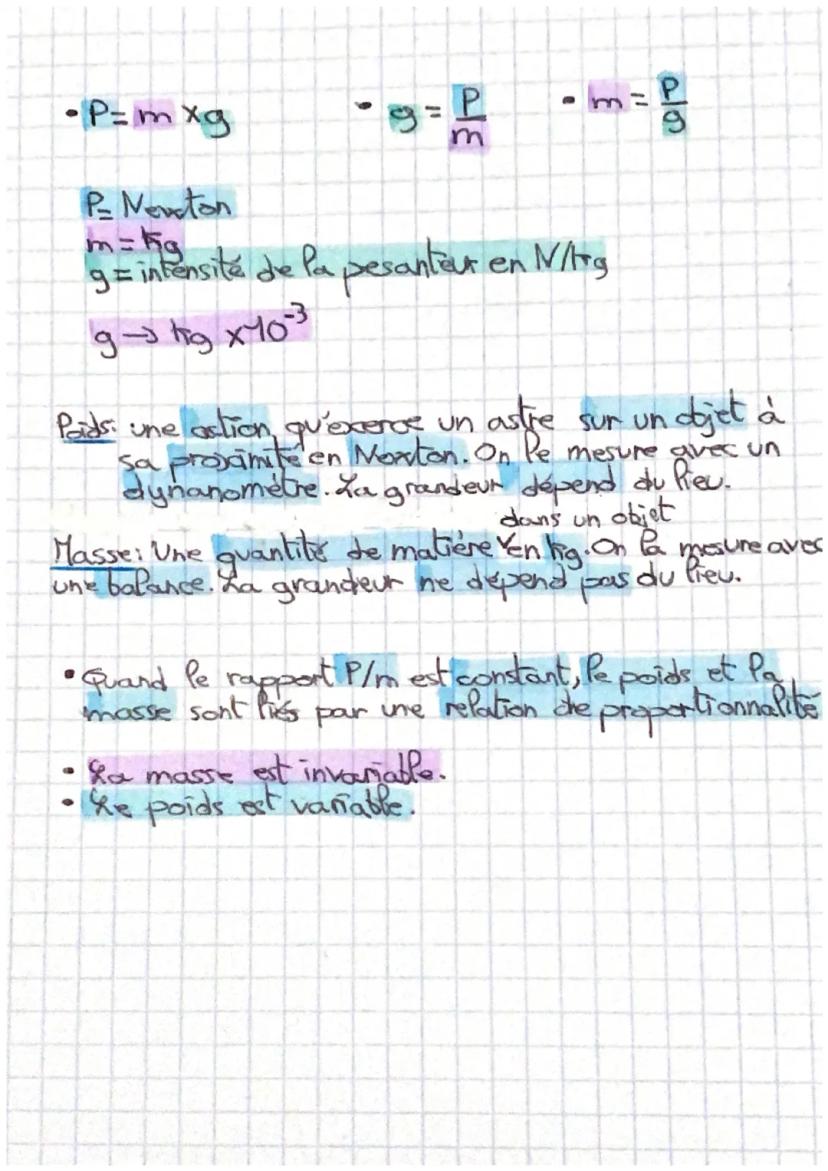 • P = m × g • g = P/m • m = P/g
P = Newton
m = kg
g = intensité de la pesanteur en N/kg
g → kg × 10⁻³
Poids : une action qu'exerce un astre sur un objet à
sa proximité en Newton. On le mesure avec un
dynanomètre. La grandeur dépend du lieu.
dans un objet
Masse : Une quantité de matière ∨ en kg. On la mesure avec
une balance. La grandeur ne dépend pas du lieu.
• Quand le rapport P/m est constant, le poids et la
masse sont liés par une relation de proportionnalité
• La masse est invariable.
• Le poids est variable.